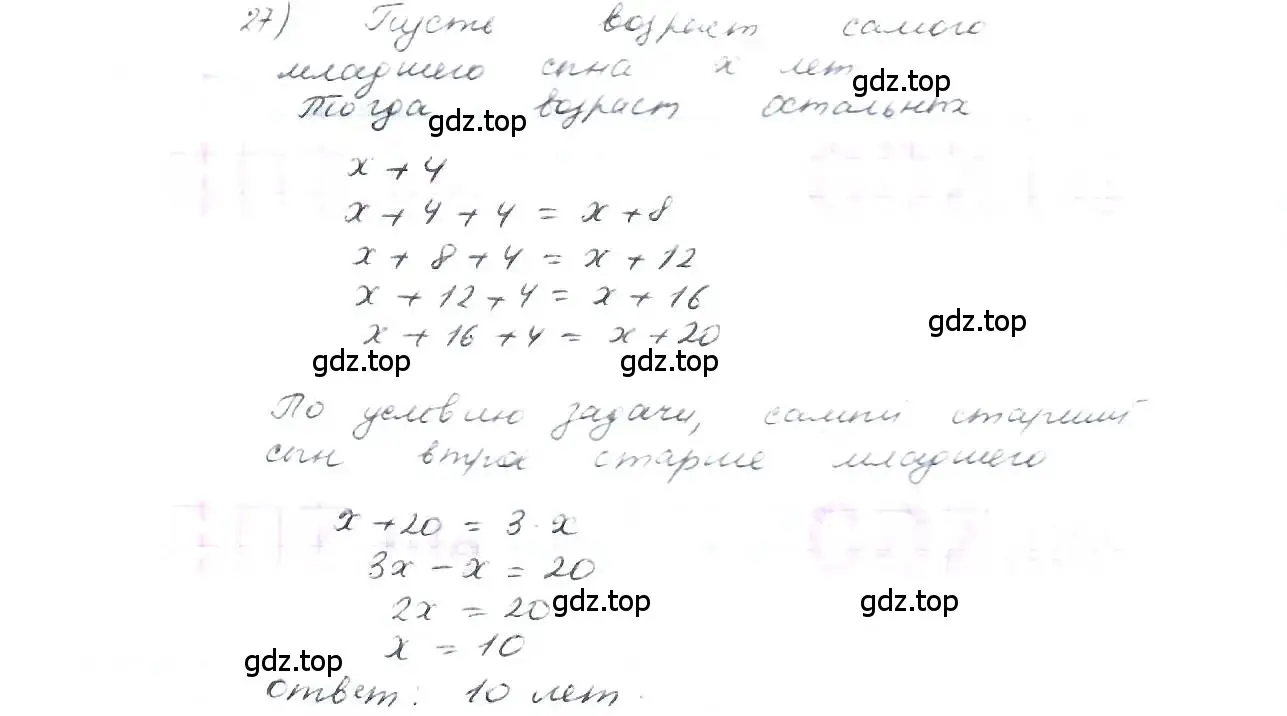 27) Пусть возраст самого
младшего сына x лет
gdz.top
Тогда возраст остальных
gdz.top
x + 4
x + 4 + 4 = x + 8
x + 8 + 4 = x + 12
x + 12 + 4 = x + 16
gdz.top
x + 16 + 4 = x + 20
gdz.top gdz.top
По условию задачи, самый старший
сын втрое старше младшего
x + 20 = 3 · x
3x − x = 20
2x = 20
gdz.top gdz.top
x = 10
gdz.top
Ответ: 10 лет.